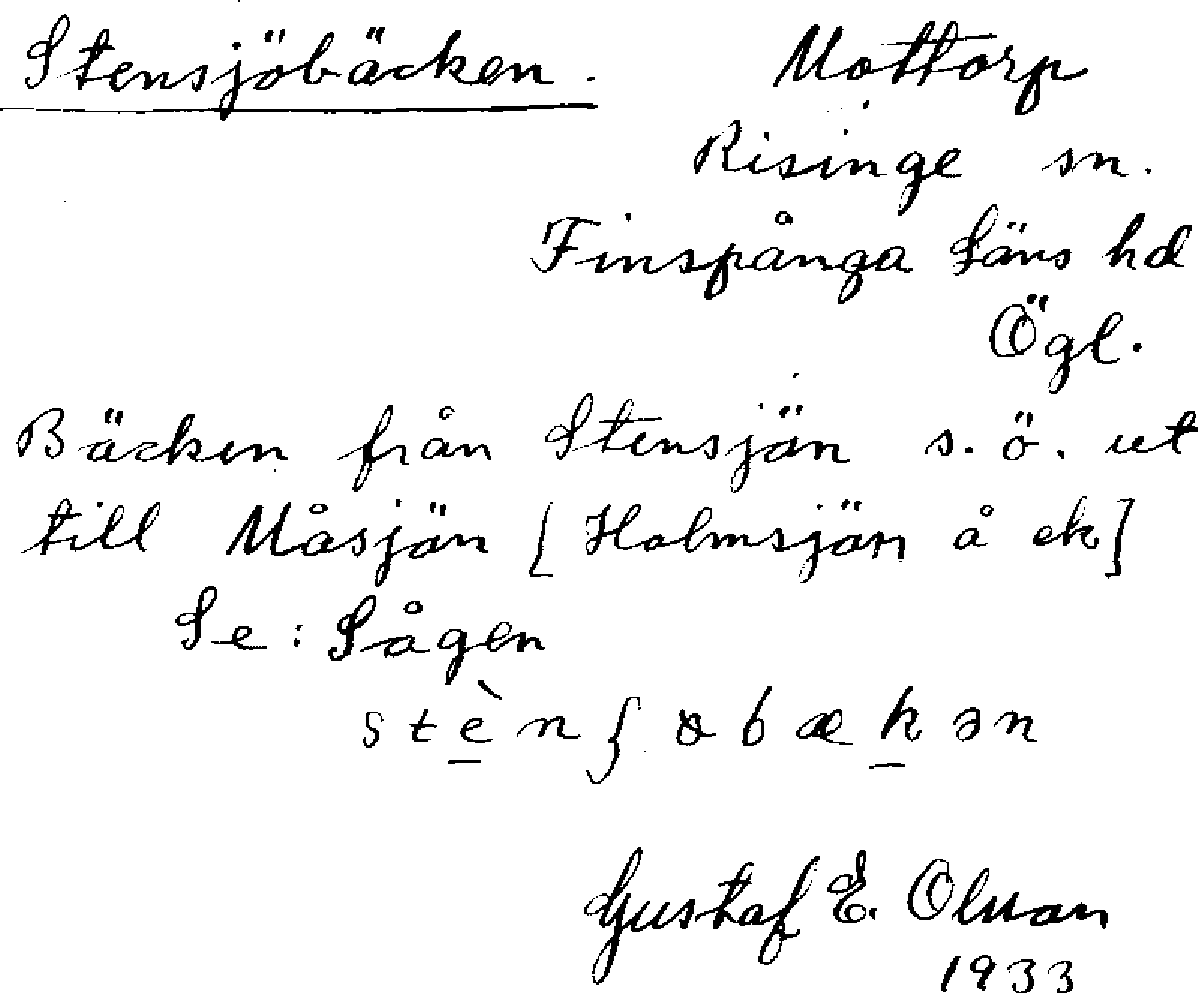 Stensjöbäcken. Mottorp
Risinge sn.
Finspånga läns hd
Ögl.
Bäcken från Stensjön s.ö. ut
till Måsjön [Holmsjön å ek]
Se: Sågen
stènʃɵbækən
Gustaf E. Olsson
1933